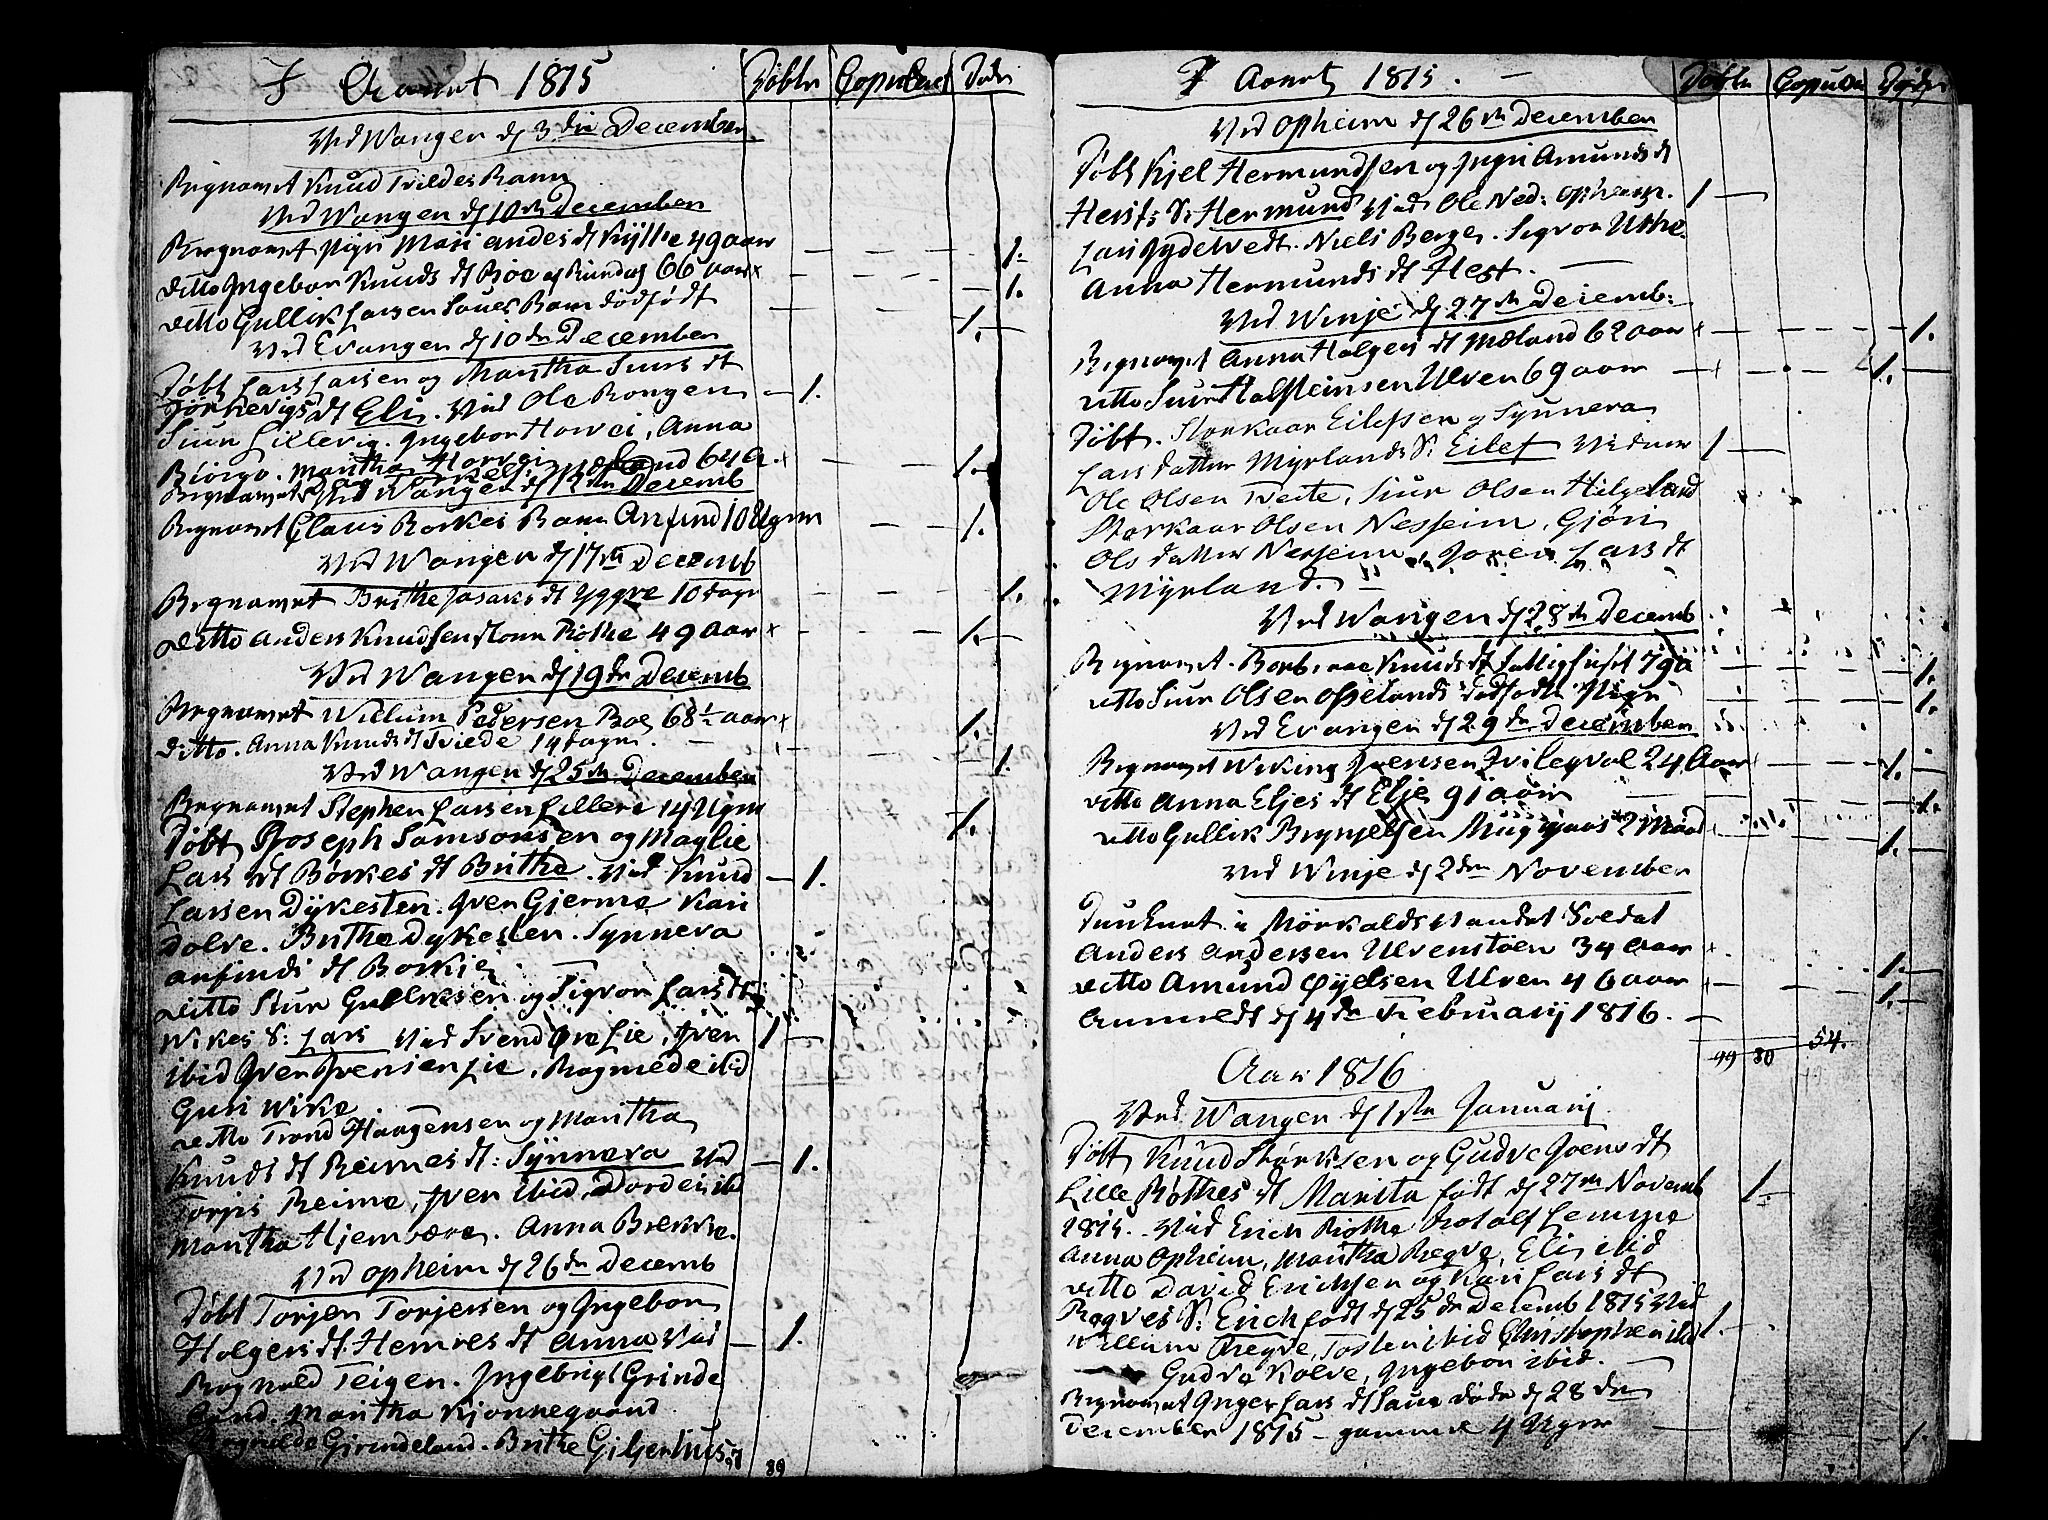 I Aaret 1815
Døbte Copuleret Døde
Ved Wangen d 3die December
Begravet Knud Tvildes Barn
Ved Wangen d 10de December
Begravet Mari Andes dt Kyllie 49 aar 1.
ditto Ingebor Knuds dt Böe 66 aar 1.
ditto Gullik Larsen Sones Barn dödfödt 1.
Ved Evanger d 10de December
Döbt Lars Larsen og Mantha Siurs dt
dt Eli. Vid Ole Rongen 1.
Siur Lillerig. Ingebor Horvei, Anna
Biörgo. Mantha Horvei
Begravet 64 a. 1.
Ved Wangen d Decemb
Begravet Claus Börkes Barn Anfind 10 Ugur 1.
Ved Wangen d 17de Decemb
Begravet Brithe Isaks dt Yggre 10 dage 1.
ditto Anders Knudsen Röthe 49 aar 1.
Ved Wangen d 19de Decemb
Begravet Willum Pedersen Böe 68½ aar 1.
ditto. Anna Knuds dt Tvede 14 dage. 1.
Ved Wangen d 25de December
Begravet Stephen Larsen Lillere 14 Ugur 1.
Döbt Joseph Samsonsen og Maglie
Lars dt Börkes dt Brithe. Vid Knud 1.
Larsen Dykesten. Iver Gjerme Kari
Dolve. Brithe Dykesten. Synneva
Anfinds dt Borkie
ditto Siur Gulliksen og Sigvor Lars dt
Wikes S: Lars Vid Svend Øvre Lie, Iven 1
ibid Iver Iversen Lie, Ragnilde ibid
Guri Wike
ditto Trond Haagensen og Mantha
Knuds dt Reimes dt: Synneva Vid 1.
Torjis Reime, Iven ibid, Dordei ibid
Mantha Hjemvære. Anna Brekke.
Ved Opheim d 26de Decemb
Döbt Torjer Torjersen og Ingebor
Holgers dt Hemres dt Anna Vid 1.
Rognald Teigen. Ingebrigt Grinde
land. Mantha Kjonnegaard
Ragnilde Grindeland. Brithe Gilgerhus 97 89
I Aaret 1815.
Døbte Copule Døde
Ved Opheim d 26de December
Döbt Kjel Hermundsen og Ingri Amunds dt
S: Hermund Vid Ole Ned: Opheim. 1
Lars Gydetvedt. Niels Berge. Sigvor Uthe.
Anna Hermunds dt Hest.
Ved Winje d 27de Decemb:
Begravet Anna Holgers dt Mæland 62 aar 1.
ditto Siur Halsteinsen Ulven 69 aar 1.
Döbt. Storkaar Eilefsen og Synneva
Lars datter Myrlands S: Eilef Viduer 1
Ole Olsen Tveite, Siur Olsen Helgeland
Storkaar Olsen Nesheim, Gjöri
Ols datter Nesheim, Joren Lars dt
Myrland.
Ved Wangen d 28de Decemb
Begravet. Barbraae Knuds dt 79 a 1.
ditto Siur Olsen Opelands dödfödte 1.
Ved Evanger d 29de December
Begravet Wiking Iversen 24 Aar 1.
ditto Anna Eljes dt Elje 91 aar 1.
ditto Gullik Brynjelsen 2 Maad 1.
Ved Winje d 2den November
Druknet i Mörkaldsvandet Soldat
Anders Andersen Ulvenstöen 34 Aar 1.
ditto Amund Öyelsen Ulven 46 aar 1.
Anmeldt d 4de Februarij 1816.
99 80 54.
Aar 1816
Ved Wangen d 1ste Januarij
Döbt Knud Störksen og Gudve Joens dt
Lille Röthes dt Marita födt d 27de Novemb 1
1815. Vid Erich Röthe Rotolf Lemme
Anna Opheim, Mantha Regve, Eli ibid
ditto David Erichsen og Kari Lars dt
Rogves S: Erich födt d 25de Decemb 1815 Vid
Willum Regve, Tosten ibid Christopher ibid 1.
Gudve Kolve, Ingebor ibid.
Begravet Inger Lars dt Saue döde d 28de
December 1815 - gammel 4 Uger 1.